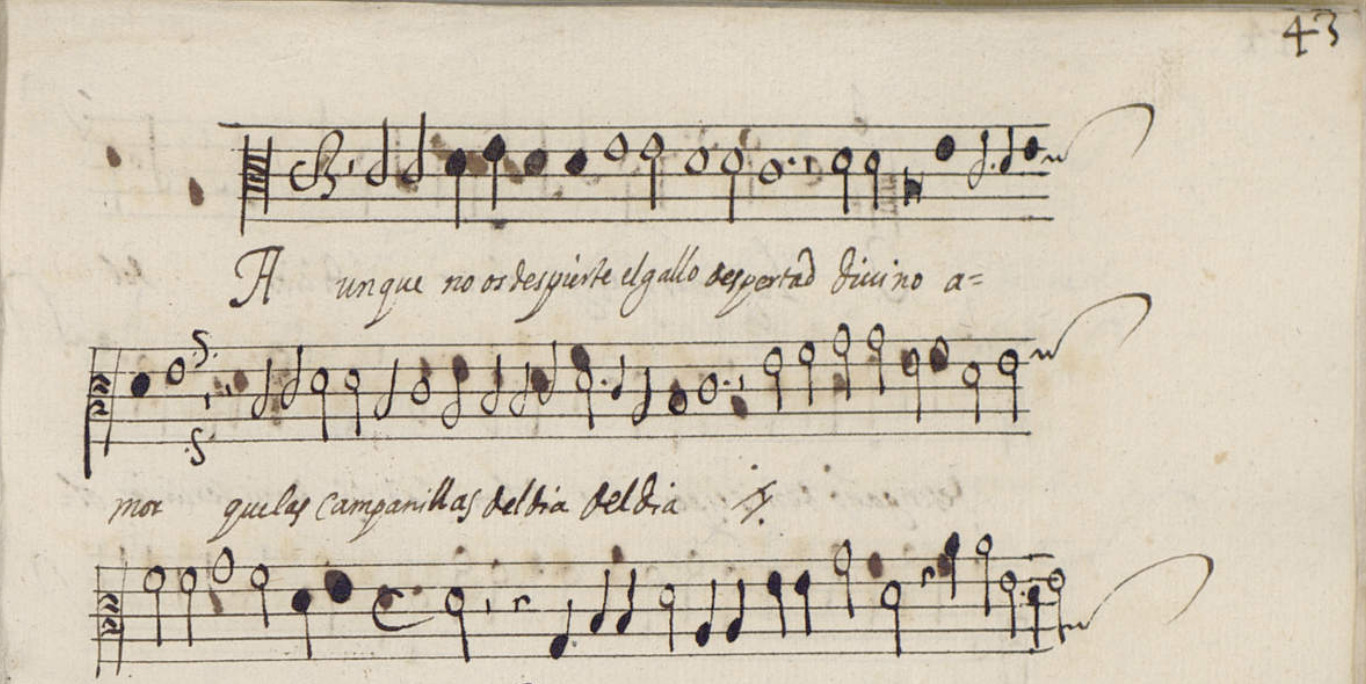 43
Aunque no os despierte el gallo despertad divino a=
mor que las campanillas del dia del dia